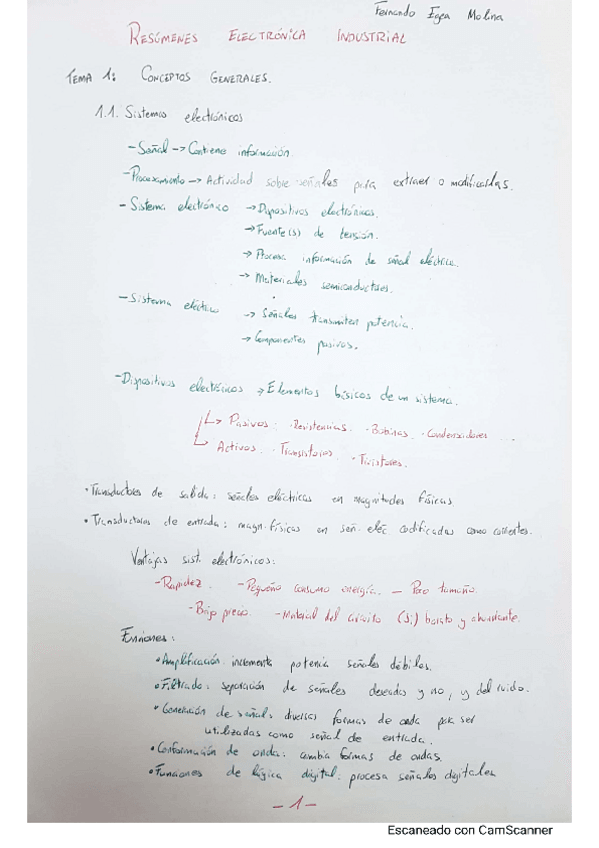 Fernando Egea Molina
RESÚMENES ELECTRÓNICA INDUSTRIAL
TEMA 1: CONCEPTOS GENERALES.
1.1. Sistemas electrónicos
- Señal → Contiene información.
- Procesamiento → Actividad sobre señales para extraer o modificarlas.
- Sistema electrónico → Dispositivos electrónicos.
→ Fuente(s) de tensión.
→ Procesa información de señal eléctrica.
→ Materiales semiconductores.
- Sistema eléctrico → Señales transmiten potencia.
→ Componentes pasivos.
- Dispositivos electrónicos → Elementos básicos de un sistema.
↳ Pasivos: · Resistencias. · Bobinas. · Condensadores ...
↳ Activos. · Transistores. · Tiristores.
• Transductores de salida: señales eléctricas en magnitudes físicas.
• Transductores de entrada: magn. físicas en señ. eléc codificadas como corrientes.
Ventajas sist. electrónicos:
- Rapidez. - Pequeño consumo energía. - Poco tamaño.
- Bajo precio. - Material del circuito (Si) barato y abundante.
Funciones:
• Amplificación: incrementa potencia señales débiles.
• Filtrado: separación de señales deseadas y no, y del ruido.
• Generación de señal: diversas formas de onda para ser
utilizadas como señal de entrada.
• Conformación de onda: cambia formas de ondas.
• Funciones de lógica digital: procesa señales digitales
- 1 -
Escaneado con CamScanner